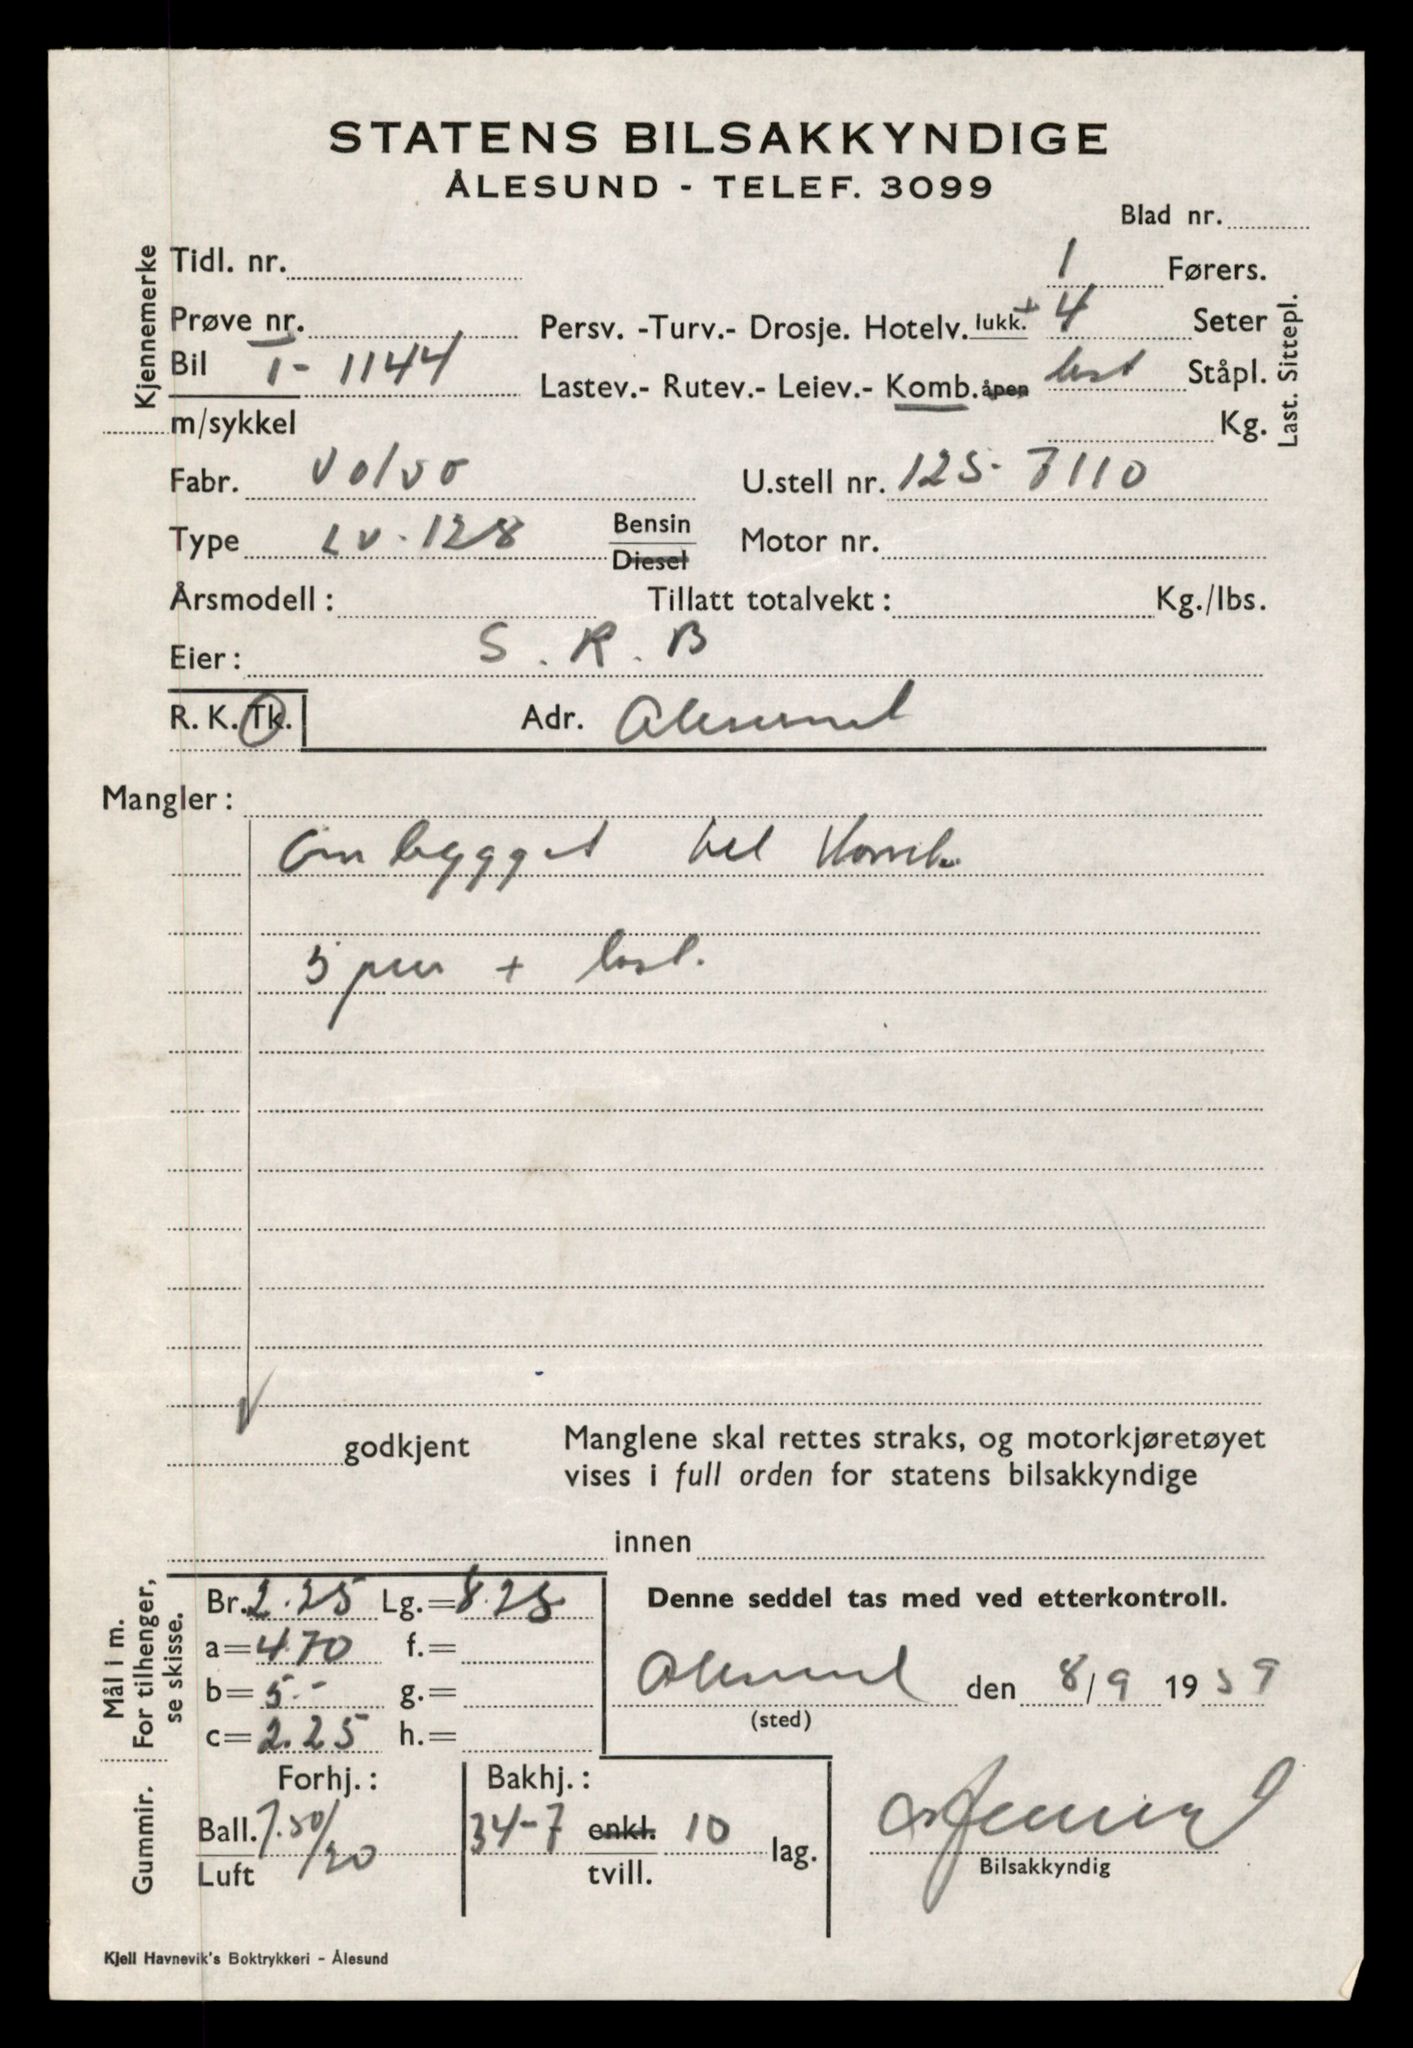 STATENS BILSAKKYNDIGE
ÅLESUND - TELEF. 3099
Blad nr.
Kjennemerke
Tidl. nr.
1 Førers.
Prøve nr.
Persv. -Turv.- Drosje. Hotelv. lukk. + 4 Seter
Bil T- 1144
Lastev.- Rutev.- Leiev.- Komb. åpen last Ståpl.
Last. Sittepl.
m/sykkel
Kg.
Fabr. Volvo U.stell nr. 125-7110
Type LV-128 Bensin
Diesel Motor nr.
Årsmodell: Tillatt totalvekt: Kg./lbs.
Eier: S. R. B
R. K. Tk. Adr. Ålesund
Mangler:
Ombygget til Komb.
5 pers + last.
godkjent Manglene skal rettes straks, og motorkjøretøyet
vises i full orden for statens bilsakkyndige
innen
Mål i m.
For tilhenger,
se skisse.
Br. 2.25 Lg.= 8.25 Denne seddel tas med ved etterkontroll.
a= 4.70 f.=
b= 5.- g.= Ålesund den 8/9 1959
(sted)
c= 2.25 h.=
Gummir.
Forhj.: Bakhj.:
Ball. 7.50/20 34-7 enkl. 10 lag.
Luft tvill.
Bilsakkyndig
Kjell Havnevik's Boktrykkeri - Ålesund